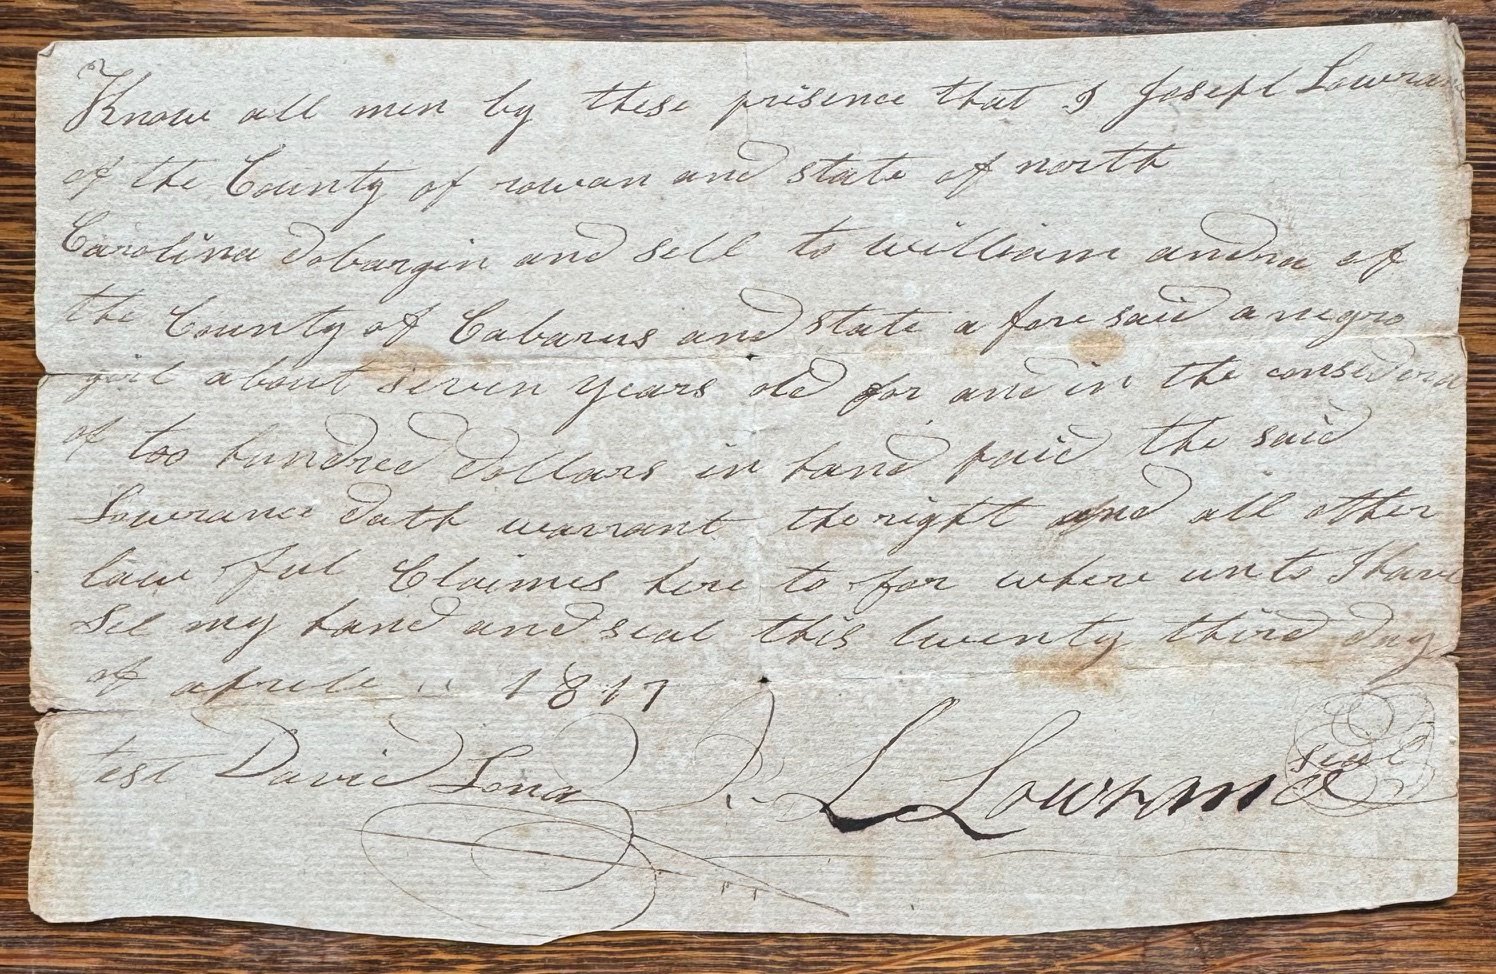 Know all men by these prisince that I Joseph Lowran
of the County of rowan and state of north
Carolina dobargin and sell to william andra of
the County of Cabarus and state a fore said a negro
girl about seven years old for and in the considera
of too hundred dollars in hand paid the said
Lowrance doth warrant the right and all other
law ful Claimes here to for where unto I have
Set my hand and seal this twenty third day
of aprele 1817
test David
L Lowrance seal